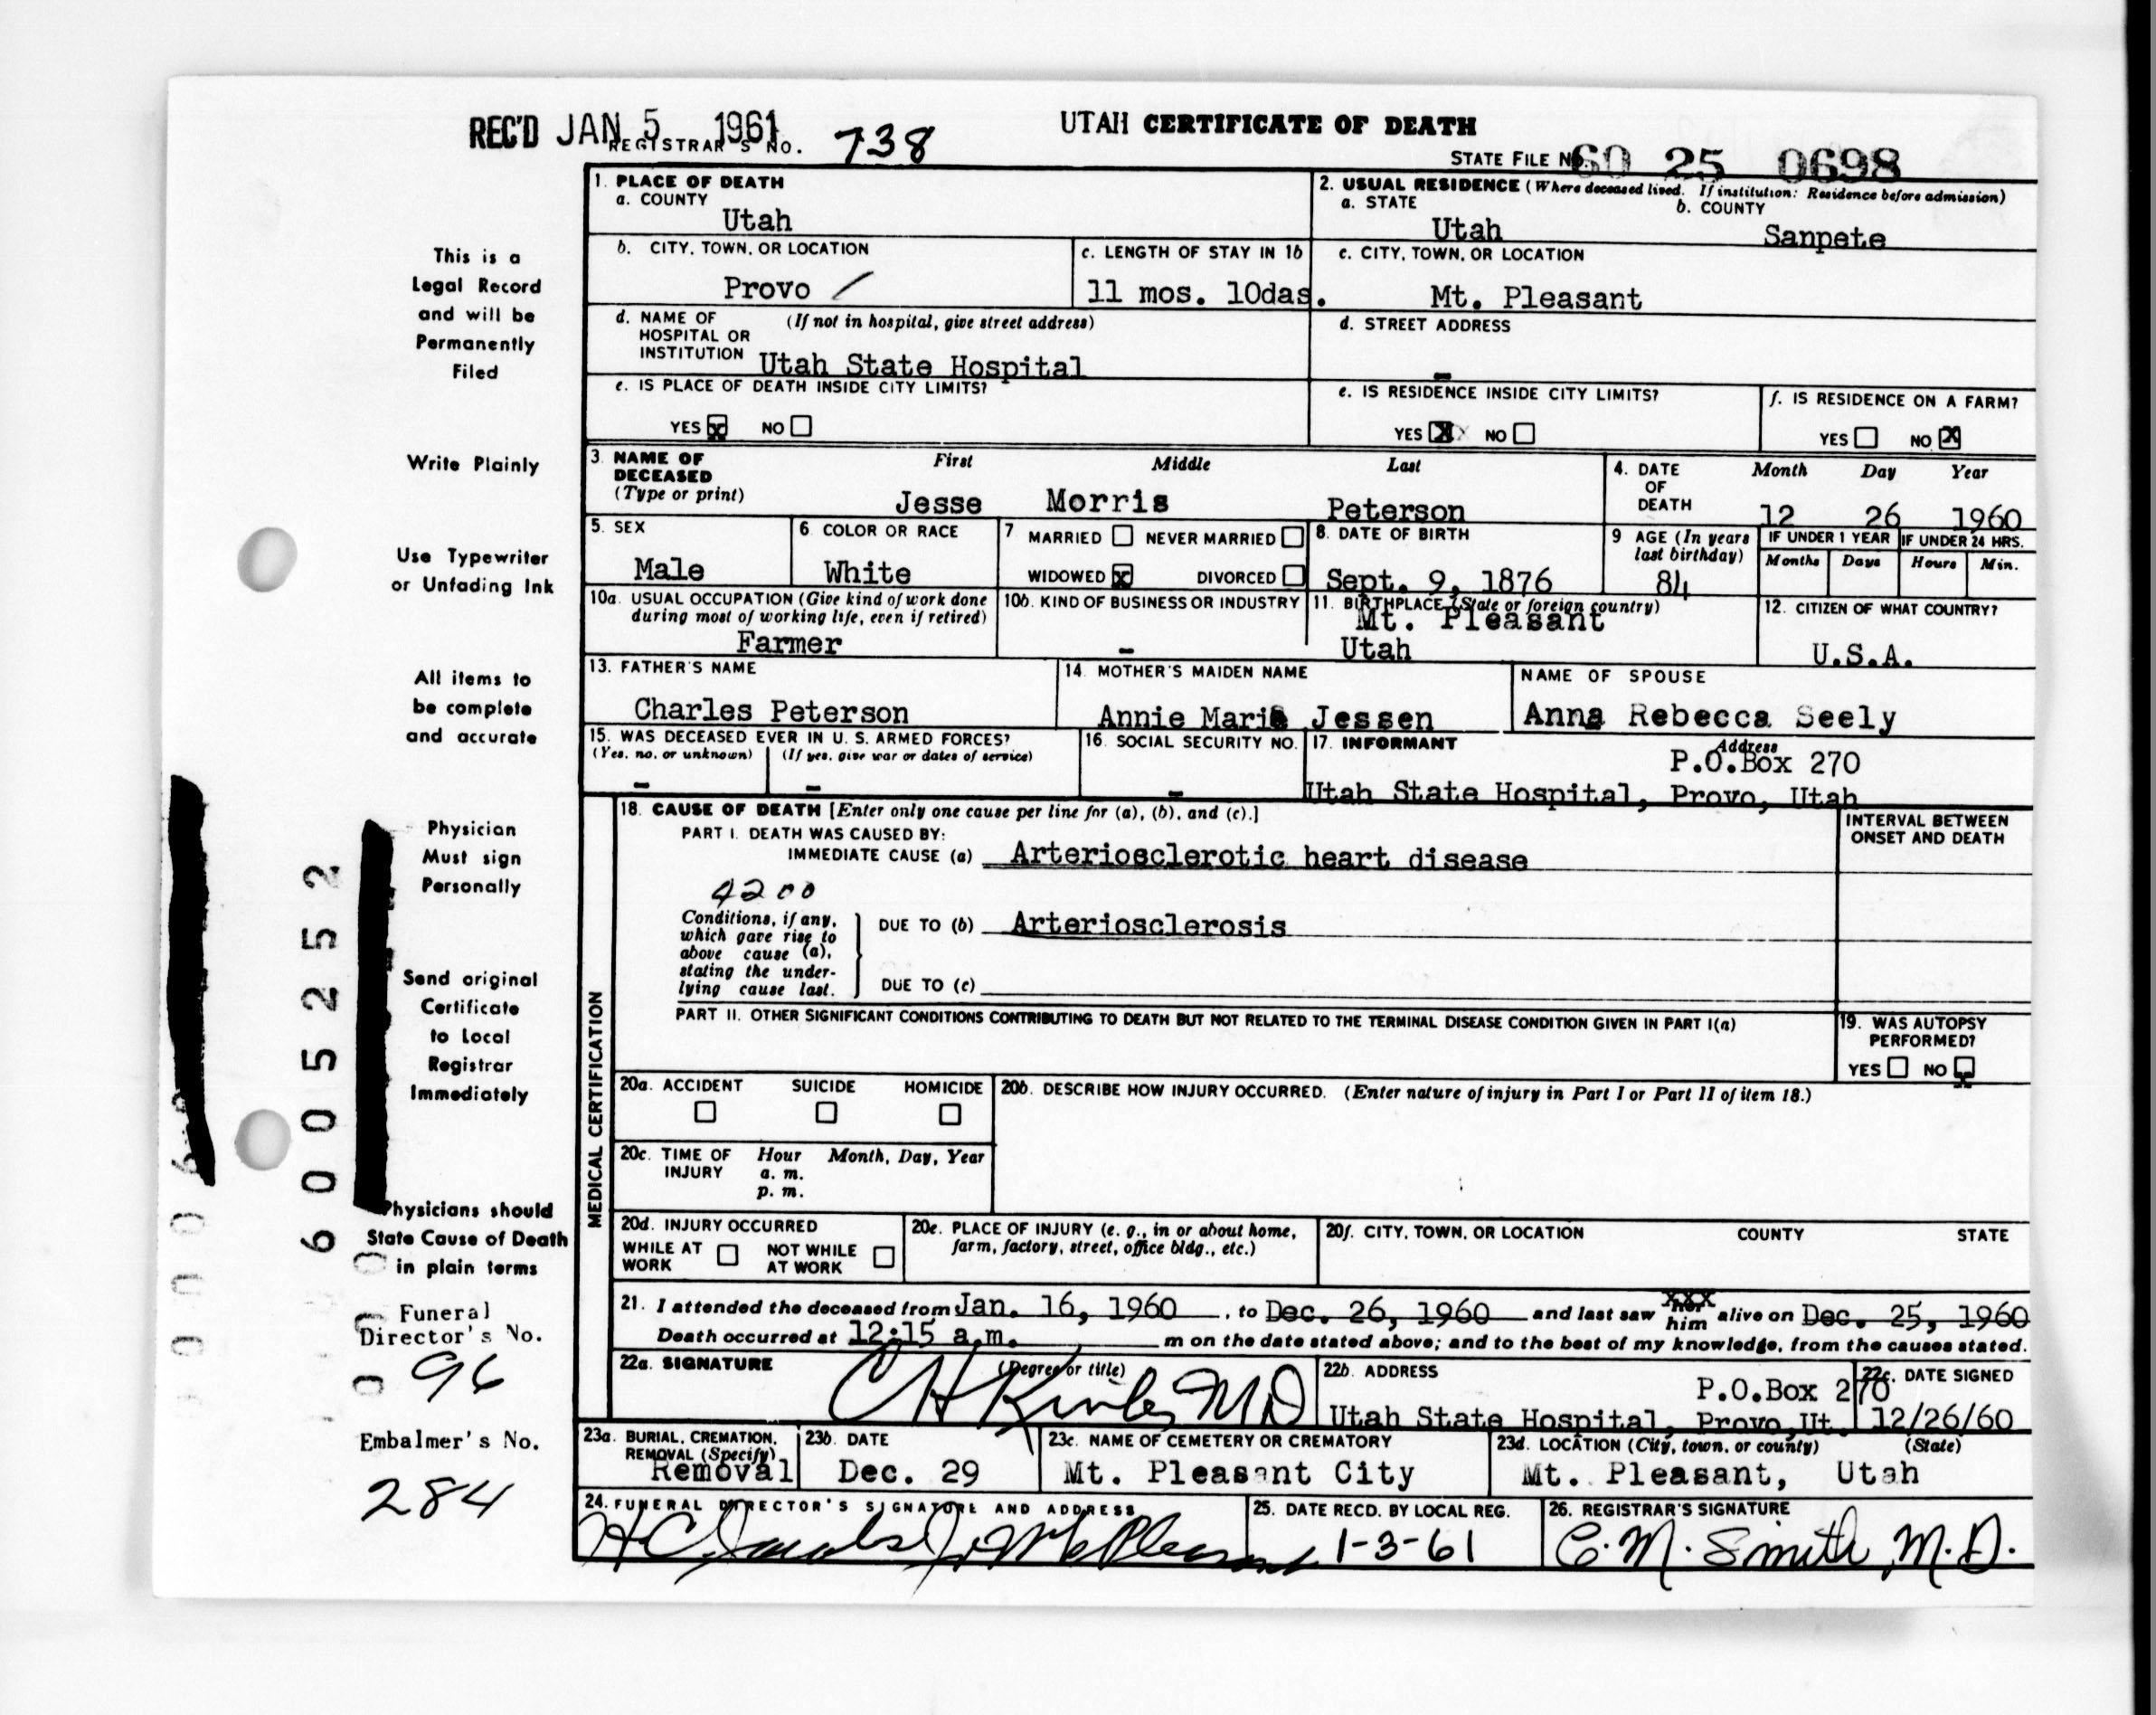 REC'D JAN 5 1961
REGISTRAR'S NO. 738
UTAH CERTIFICATE OF DEATH
STATE FILE NO. 60 25 0698
This is a
Legal Record
and will be
Permanently
Filed
Write Plainly
Use Typewriter
or Unfading Ink
All items to
be complete
and accurate
Physician
Must sign
Personally
Send original
Certificate
to Local
Registrar
Immediately
Physicians should
State Cause of Death
in plain terms
Funeral
Director's No.
96
Embalmer's No.
284
6005252
1. PLACE OF DEATH
a. COUNTY
Utah
2. USUAL RESIDENCE (Where deceased lived. If institution: Residence before admission)
a. STATE
Utah
b. COUNTY
Sanpete
b. CITY, TOWN, OR LOCATION
Provo /
c. LENGTH OF STAY IN 1b
11 mos. 10das.
c. CITY, TOWN, OR LOCATION
Mt. Pleasant
d. NAME OF (If not in hospital, give street address)
HOSPITAL OR
INSTITUTION Utah State Hospital
d. STREET ADDRESS
-
e. IS PLACE OF DEATH INSIDE CITY LIMITS?
YES x NO
e. IS RESIDENCE INSIDE CITY LIMITS?
YES X NO
f. IS RESIDENCE ON A FARM?
YES NO X
3. NAME OF DECEASED
(Type or print)
First Middle Last
Jesse Morris Peterson
4. DATE OF DEATH
Month Day Year
12 26 1960
5. SEX
Male
6. COLOR OR RACE
White
7 MARRIED NEVER MARRIED
WIDOWED x DIVORCED
8. DATE OF BIRTH
Sept. 9, 1876
9 AGE (In years
last birthday)
84
IF UNDER 1 YEAR IF UNDER 24 HRS.
Months Days Hours Min.
10a. USUAL OCCUPATION (Give kind of work done
during most of working life, even if retired)
Farmer
10b. KIND OF BUSINESS OR INDUSTRY
-
11. BIRTHPLACE (State or foreign country)
Mt. Pleasant
Utah
12. CITIZEN OF WHAT COUNTRY?
U.S.A.
13. FATHER'S NAME
Charles Peterson
14. MOTHER'S MAIDEN NAME
Annie Maria Jessen
NAME OF SPOUSE
Anna Rebecca Seely
15. WAS DECEASED EVER IN U. S. ARMED FORCES?
(Yes, no, or unknown) (If yes, give war or dates of service)
- -
16. SOCIAL SECURITY NO.
-
17. INFORMANT Address
P.O.Box 270
Utah State Hospital, Provo, Utah
MEDICAL CERTIFICATION
18. CAUSE OF DEATH [Enter only one cause per line for (a), (b), and (c).]
PART I. DEATH WAS CAUSED BY:
IMMEDIATE CAUSE (a) Arteriosclerotic heart disease
INTERVAL BETWEEN
ONSET AND DEATH
4200
Conditions, if any,
which gave rise to
above cause (a),
stating the under-
lying cause last.
DUE TO (b) Arteriosclerosis
DUE TO (c)
PART II. OTHER SIGNIFICANT CONDITIONS CONTRIBUTING TO DEATH BUT NOT RELATED TO THE TERMINAL DISEASE CONDITION GIVEN IN PART I(a)
19. WAS AUTOPSY
PERFORMED?
YES NO x
20a. ACCIDENT SUICIDE HOMICIDE
20b. DESCRIBE HOW INJURY OCCURRED. (Enter nature of injury in Part I or Part II of item 18.)
20c. TIME OF INJURY
Hour Month, Day, Year
a. m.
p. m.
20d. INJURY OCCURRED
WHILE AT WORK NOT WHILE AT WORK
20e. PLACE OF INJURY (e. g., in or about home,
farm, factory, street, office bldg., etc.)
20f. CITY, TOWN, OR LOCATION COUNTY STATE
21. I attended the deceased from Jan. 16, 1960, to Dec. 26, 1960 and last saw xxx her him alive on Dec. 25, 1960
Death occurred at 12:15 a.m. m on the date stated above; and to the best of my knowledge, from the causes stated.
22a. SIGNATURE (Degree or title)
MD
22b. ADDRESS
P.O.Box 270
Utah State Hospital, Provo,Ut.
22c. DATE SIGNED
12/26/60
23a. BURIAL, CREMATION,
REMOVAL (Specify)
Removal
23b. DATE
Dec. 29
23c. NAME OF CEMETERY OR CREMATORY
Mt. Pleasant City
23d. LOCATION (City, town, or county) (State)
Mt. Pleasant, Utah
24. FUNERAL DIRECTOR'S SIGNATURE AND ADDRESS
25. DATE RECD. BY LOCAL REG.
1-3-61
26. REGISTRAR'S SIGNATURE
C. M. Smith M.D.